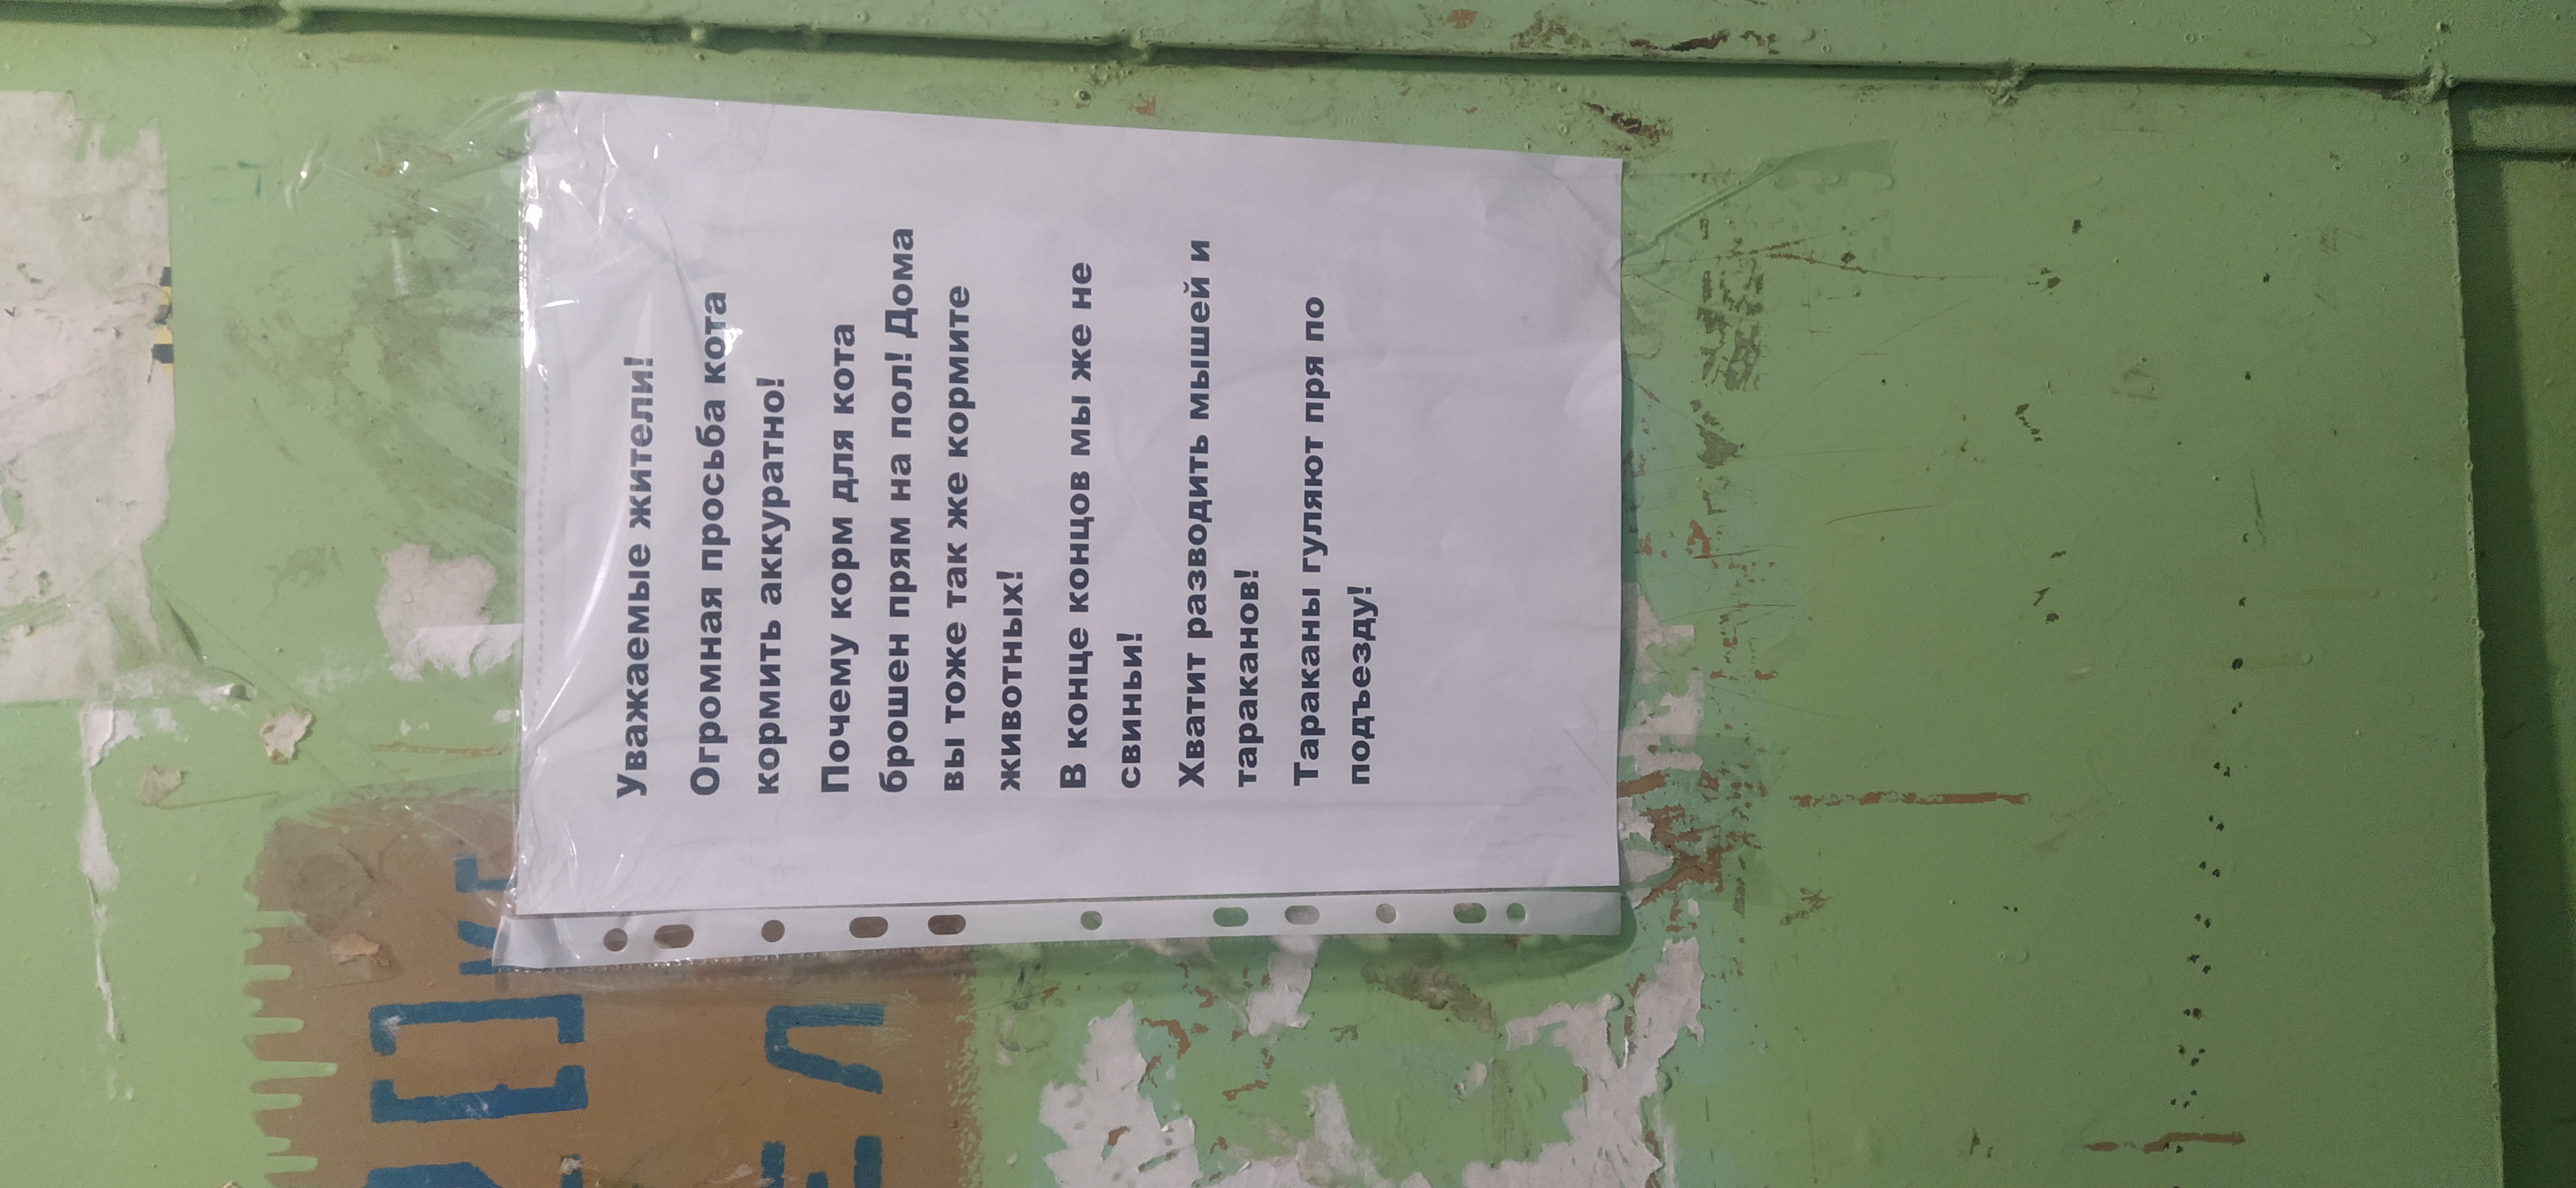 Уважаемые жители!
Огромная просьба кота
кормить аккуратно!
Почему корм для кота
брошен прям на пол! Дома
вы тоже так же кормите
животных!
В конце концов мы же не
свиньи!
Хватит разводить мышей и
тараканов!
Тараканы гуляют пря по
подъезду!